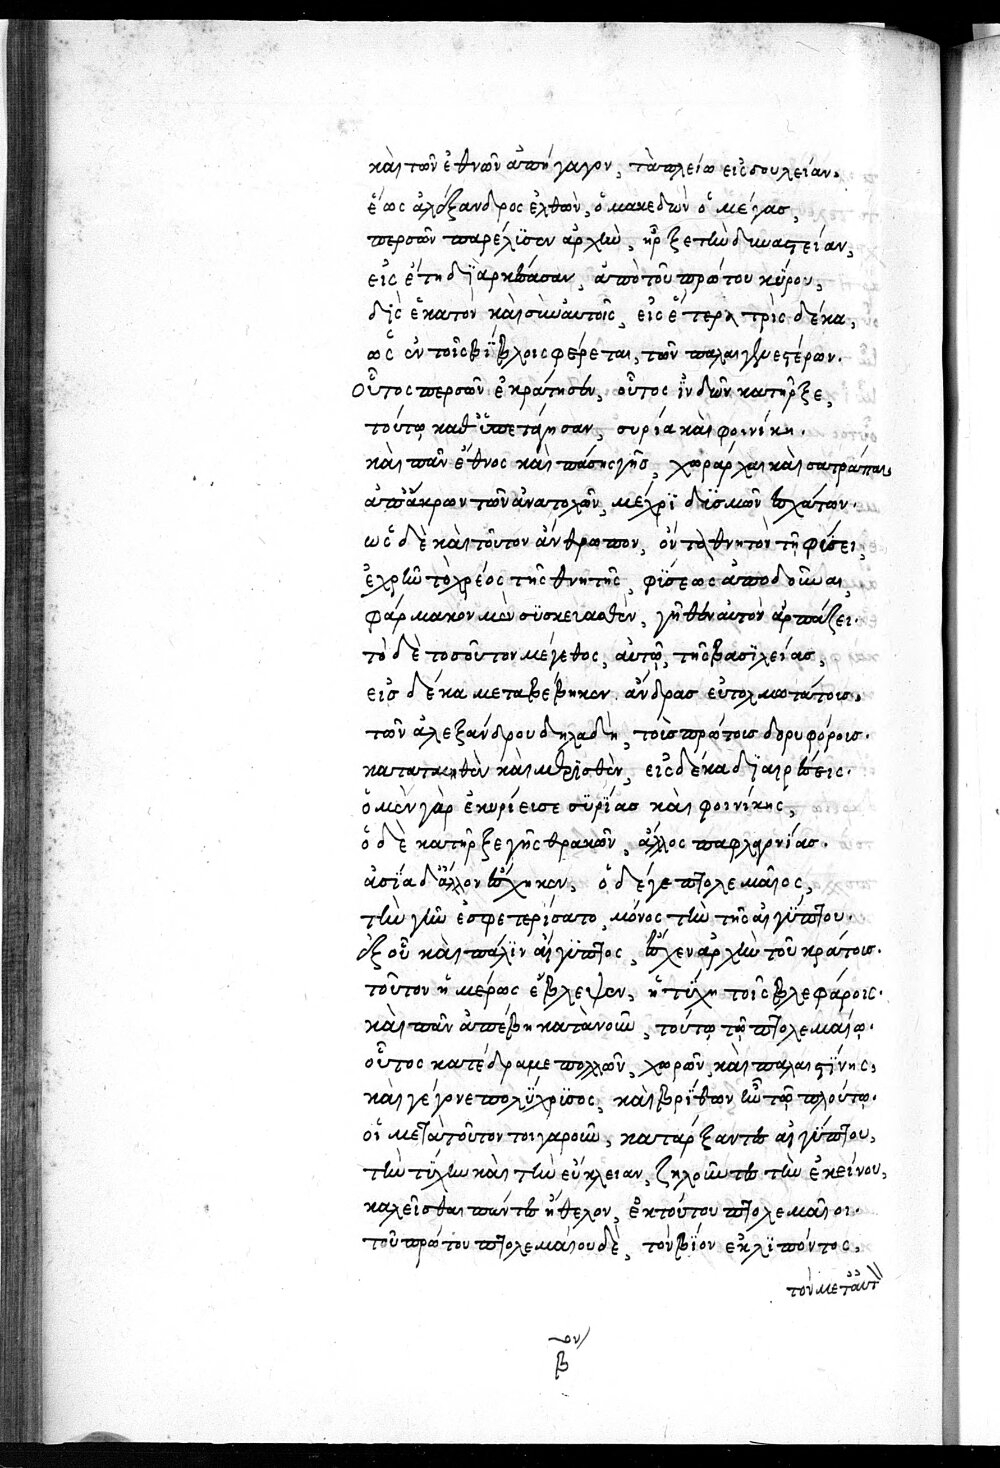 καὶ τῶν ἐθνῶν ἀπήγαγον, τὰ πλείω εἰς δουλείαν.
ἕως ἀλέξανδρος ἐλθὼν, ὁ μακεδὼν ὁ μέγας,
περσῶν παρέλϊσεν ἀρχὴν, ἧρξε τὴν δυναστείαν,
εἰς ἔτη διαρκέσασαν, ἀπὸ τοῦ πρώτου κύρου,
δὶς ἑκατὸν καὶ σὺν αὐτοῖς, εἰς ἕτερα τρὶς δέκα,
ὡς ἐν τοῖς βΐβλοις φέρεται, τῶν παλαιγενεστέρων.
Οὗτος περσῶν ἐκράτησεν, οὗτος ἰνδῶν κατῆρξε,
τούτῳ καθϋπετάγησαν, συρία καὶ φοινίκη.
καὶ πᾶν ἔθνος καὶ πάσης γῆς, χωράρχαι καὶ σατράπαι,
ἀπ' ἄκρων τῶν ἀνατολῶν, μέχρϊ δϋσμῶν ἐσχάτων.
ὡς δὲ καὶ τοῦτον ἄνθρωπον, ὄντα θνητὸν τῇ φύσει,
ἐχρῆν τὸ χρέος τῆς θνητῆς, φΰσεως ἀποδοῦναι,
φάρμακον μὲν σϋσκευασθὲν, γῆθεν αὐτὸν ἁρπάζει.
τὸ δὲ τοσοῦτον μέγεθος, αὐτῷ, τῆς βασιλείας,
εἰς δέκα μεταβέβηκεν ἄνδρας εὐτολμοτάτοις,
τῶν ἀλεξάνδρου δηλαδὴ, τοῖς πρώτοις δορυφόροις.
κατατμηθὲν καὶ μερισθὲν, εἰς δέκα διαιρέσεις.
ὁ μὲν γὰρ ἐκυρίεισε συρΐας καὶ φοινίκης,
ὁ δὲ κατῆρξε γῆς θρακῶν, ἄλλος παφλαγονίας.
ἀσία δ' ἄλλον ἔσχηκεν, ὁ δέ γε πτολεμαῖος,
τὴν γῆν ἐσφετερίσατο, μόνος τὴν τῆς αἰγύπτου.
ἐξ οὗ καὶ πάλιν αἴγυπτος, ἔσχεν ἀρχὴν τοῦ κράτοις.
τοῦτον ἡμέρως ἔβλεψεν, ἡ τύχη τοῖς βλεφάροις.
καὶ πᾶν ἀπέβη κατὰ νοῦν, τούτῳ τῷ πτολεμαίῳ.
οὗτος κατέδραμε πολλῶν, χωρῶν καὶ παλαιστίνης,
καὶ γέγονε πολύχρϊσος, καὶ βρίθων ἦν τῷ πλούτῳ.
οἱ μετὰ τοῦτον τοιγαροῦν, κατάρξαντες αἰγύπτου,
τὴν τύχην καὶ τὴν εὔκλειαν, ζηλοῦντες τὴν ἐκείνου,
καλεῖσθαι πάντες ἤθελον, ἐκ τούτου πτολεμαῖοι.
τοῦ πρώτου πτολεμαίου δὲ, τὸν βίον ἐκλιπόντος,
τοῦ μετ' αὐτ
ον
β